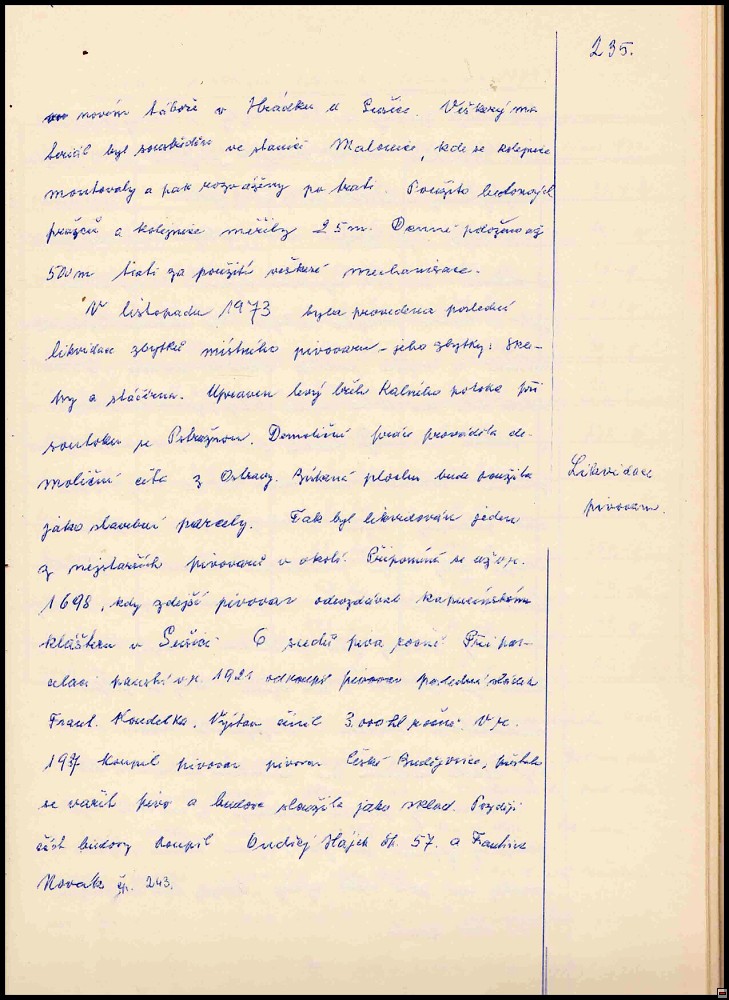 235.
novém táboře v Hrádku u Sušice. Veškerý ma
teriál byl soustředěn ve stanici Malonice, kde se kolejnice
montovaly a pak rozváženy po trati. Použito betonových
pražců a kolejnice měřily 25 m. Denně položeno až
500 m trati za použití veškeré mechanisace.
V listopadu 1973 byla provedena poslední
likvidace zbytků místního pivovaru - jeho zbytky: ška-
hy a stáčírna. Upraven levý břeh Kalného potoka při
soutoku se Ostružnou. Demoliční práce prováděla de-
moliční četa z Ostravy. Získaná plocha bude sloužila
jako stavební parcely. Tak byl likvidován jeden
z nejstarších pivovarů v okolí. Připomíná se až v r.
1698, kdy zdejší pivovar odevzdával kapucínskému
klášteru v Sušici 6 sudů piva ročně. Při par-
celaci panství v r. 1921 odkoupil pivovar poslední sládek
Frant. Koudelka. Výstav činil 3.000 hl ročně. V r.
1937 koupil pivovar pivovar České Budějovice, přestalo
se vařit pivo a budova sloužila jako sklad. Později
část budovy koupil Ondřej Hájek čp. 57. a František
Novák čp. 243.
Likvidace
pivovaru.